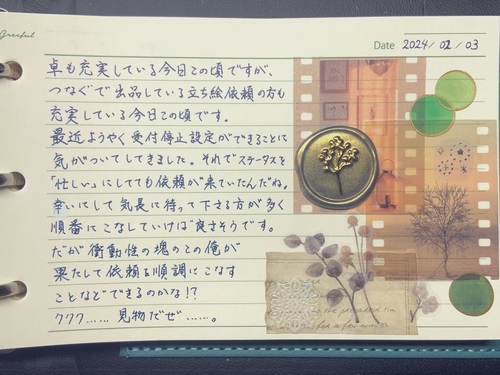 Greeful
Date 2024/02/03
卓も充実している今日この頃ですが、
つなぐで出品している立ち絵依頼の方も
充実している今日この頃です。
最近ようやく受付停止設定ができることに
気がついてしてきました。それでステータスを
「忙しい」にしてても依頼が来ていたんだね。
幸いにして気長に待って下さる方が多く
順番にこなしていけば良さそうです。
だが衝動性の塊のこの俺が
果たして依頼を順調にこなす
ことなどできるのかな!?
ククク……見物だぜ……。